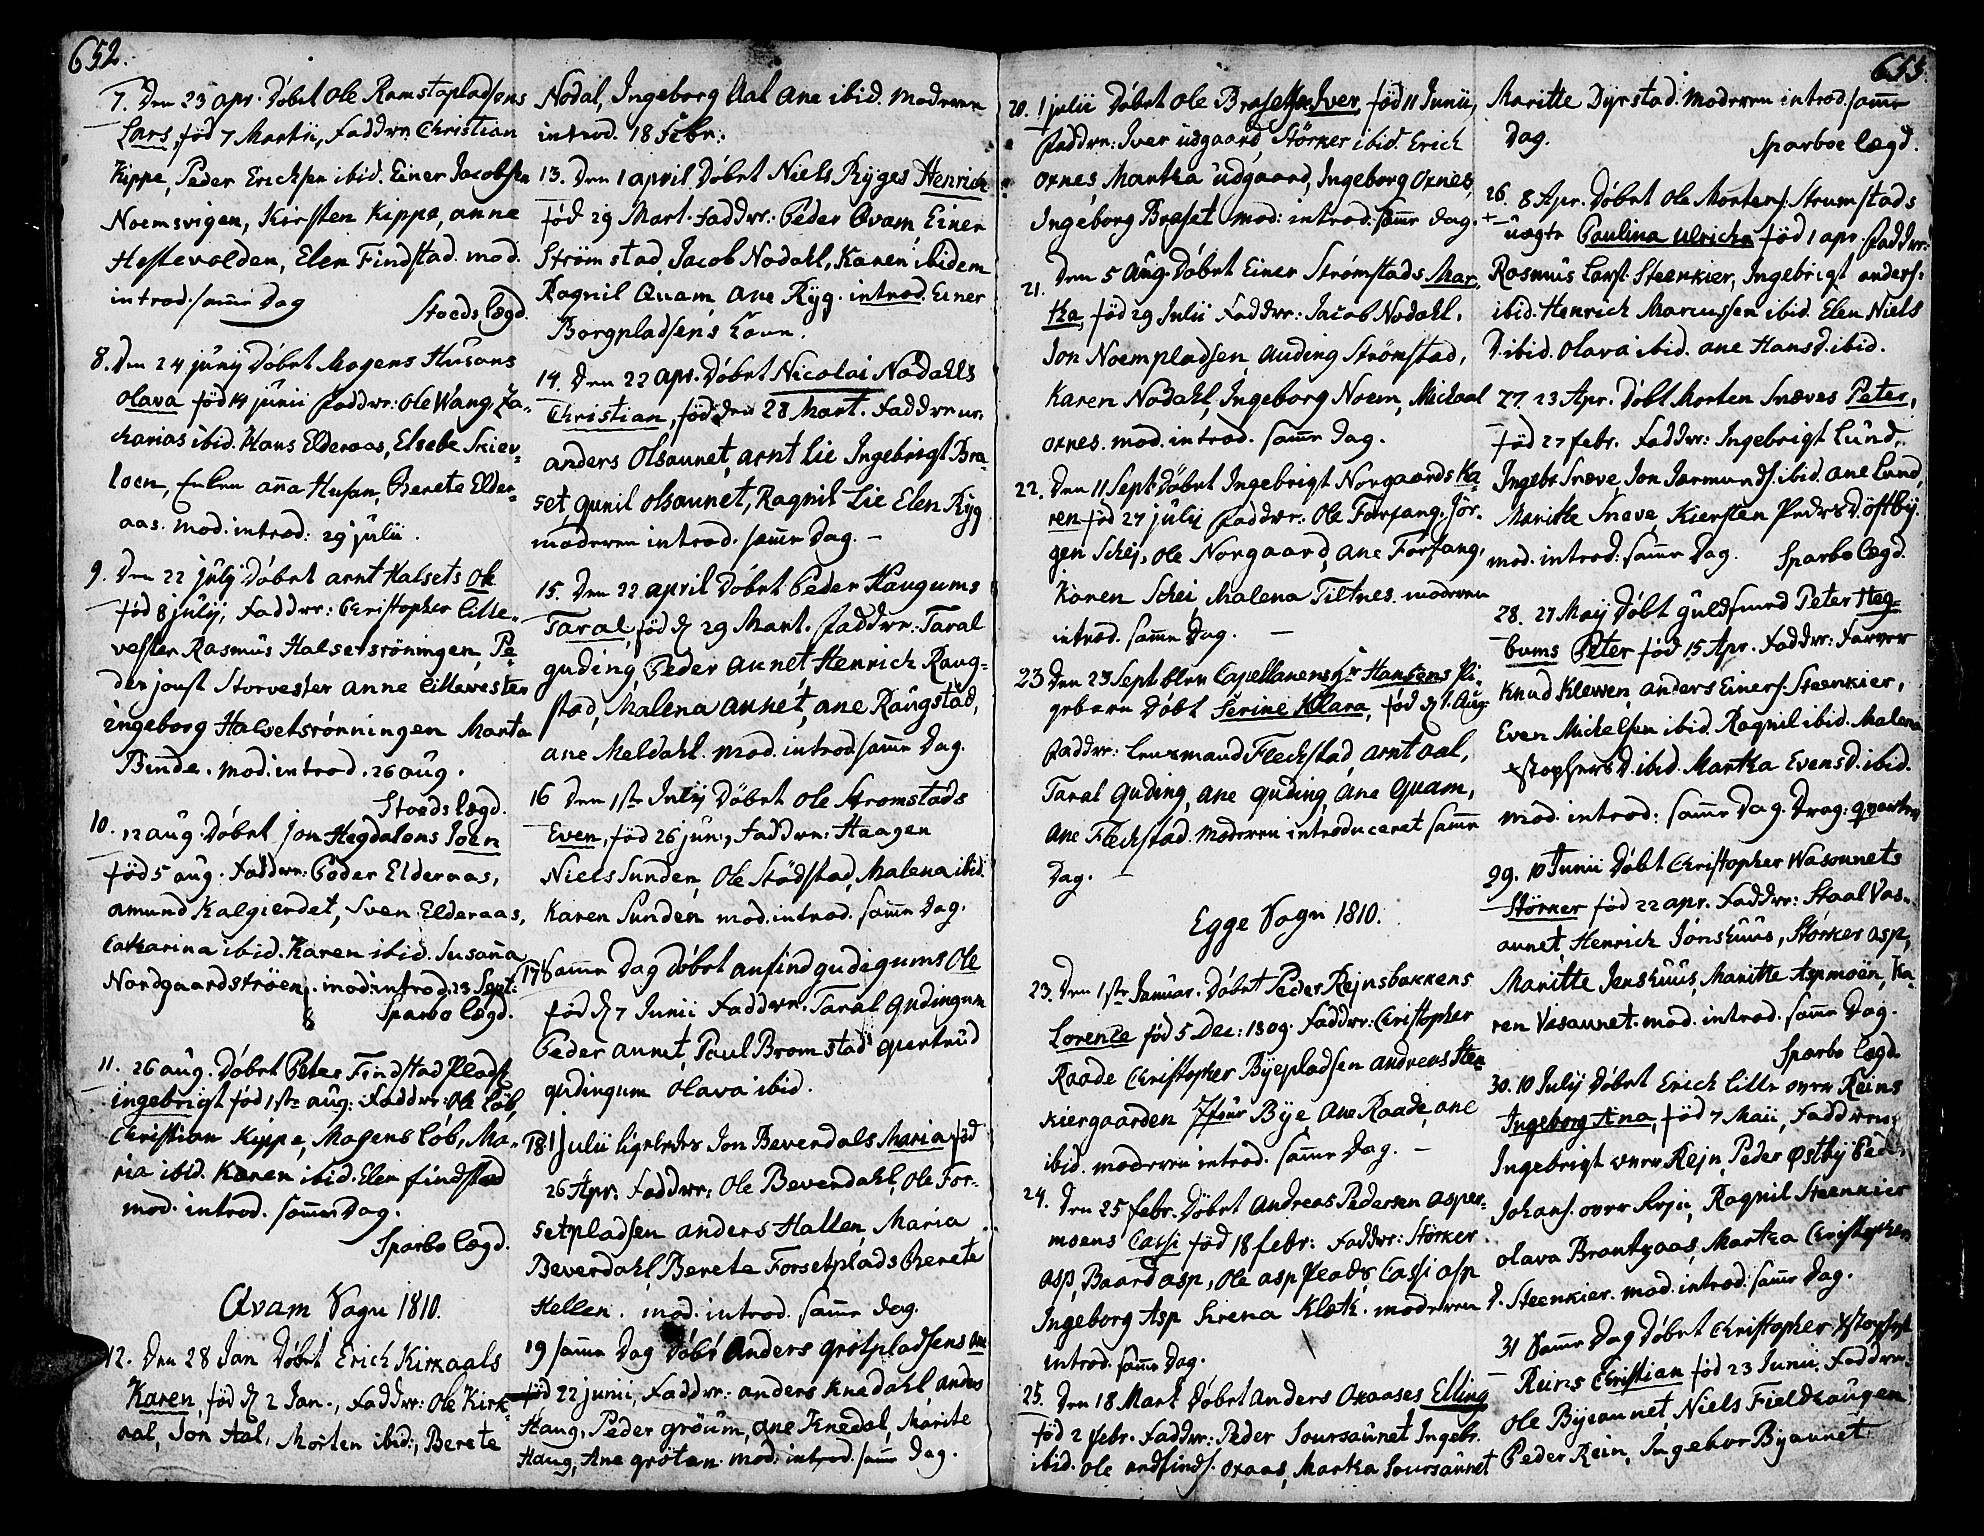 652.
7. Den 23 apr. Döbt Ole Ramstapladsens
Lars, föd 7 Martii, Faddre Christian
Kippe, Peder Ericksen ibid. Einer Jacobsen
Noemsvigen, Kirsten Kippe, anne
Hestevolden, Elen Findstad. mod.
introd. samme Dag
Stoeds Lægd.
8. Den 24 junij Döbt Mogens Husans
Olava föd 14 junii Faddre: Ole Wang, Za-
charias ibid. Hans Elderaas, Elsebe Skiev-
loen, Enken anna Husan, Berete Elder-
aas. mod. introd: 29 julii.
9. Den 22 julij Döbt arnt Halsets Ole
föd 8 julij, Faddre: Christopher Lille-
vester Rasmus Halsetsröningen, Pe-
der joust Storvester anne Lillevester
ingeborg Halsetsrönningen Marta
Binde. mod. introd. 26 aug.
Stoeds lægd.
10. 12 aug Döbt Jon Hegdalens Joen
föd 5 aug. Faddre: Peder Elderaas,
amund Kalgierdet, Sven Elderaas,
Catharina ibid. Karen ibid. Susanna
Nordgaardströen. mod: introd. 23 Sept:
Sparbo lægd.
11. 26 aug. Döbt Peter Findstad Plads:
ingebrigt föd 1ste aug: Faddre: Ole Löb,
Christian Kippe, Mogens Löb, Ma-
ria ibid. Karen ibid. Elen findstad
mod. introd. samme Dag.
Sparbo Lægd.
Qvam Sogn 1810.
12. Den 28 Jan Döbt Erich Kirkaals
Karen, föd d. 2 Jan., Faddre: Ole Kirk-
aal, Jon Aal, Morten ibid:, Berete
Nodal, Ingeborg Aal Ane ibid. moderen
introd. 18 Febr:
13. Den 1 april Döbt Niels Ryges Henrich
föd 29 Mart. Faddre: Peder Qvam Einer
Strömstad, Jacob Nodahl, Karen ibidem
Ragnil Quam Ane Ryg. introd. Einer
Borgpladsens Kone.
14. Den 22 apr. Döbt Nicolai Nodahls
Christian, föd den 28 Mart. Faddrene:
anders Olsaunet, arnt Lie Ingebrigt Bra-
set, gunil Olsaunet, Ragnil Lie Elen Ryg
moderen introd. samme Dag. —
15. Den 22 april Döbt Peder Haugums
Taral, föd d. 29 Mart. Faddre: Taral
guding, Peder aunet, Henrich Raug-
stad, Malena aunet, ane Raugstad,
ane Meldahl. mod. introd samme Dag.
16 Den 1ste Julij Döbt Ole Stromstads
Even, föd 26 jun:, Faddre: Haagen
Niels Sunden, Ole Stödstad, Malena ibid.
Karen Sunden mod. introd. samme Dag.
17 Samme Dag Döbt anfind gudegums Ole
föd d. 7 Junii Faddre. Taral Gudingum
Peder aunet, Paul Bromstad Gjertrud
gudingum Olava ibid.
18. 1 Julii ligeledes Jon Beverdals Maria föd
26 Apr: Faddre: Ole Beverdahl, Ole For-
setpladsen anders Hallen, Maria
Beverdahl, Berete Forsetplads Berete
Hellen. mod. introd. samme Dag.
19 samme Dag Döbt Anders grötpladsens Ane
föd 22 junii, Faddre: anders Knedahl, anders
Haug, Peder gröum, Ane Knedal, Marite
Haug, Ane gröten. mod: introd. samme Dag.
653
20. 1 julii Döbt Ole Brasets Iver föd 11 Junii,
Faddre: Iver Udgaard Störker ibid. Erich
Oxnes, Martha Udgaard, Ingeborg Oxnes,
Ingeborg Braset mod: introd. samme Dag.
21. Den 5 Aug. Döbt Einer Strömstads Mar-
tha, föd 29 Julii Faddre: Jacob Nodahl,
Jon Noempladsen, Auding Strömstad,
Karen Nodahl, Ingeborg Noem, Michael
Oxnes. mod. introd. samme Dag.
22. Den 11 Sept. Döbt Ingebrigt Norgaards Ka-
ren föd 27 julij Faddre: Ole Forfang, Jör-
gen Schej, Ole Norgaard, Ane Forfang,
Karen Schei Malena Tiltnes. moderen
introd. samme Dag. —
23 Den 23 Sept blev Capellanens Hr Hansens Pi-
gebarn Döbt Serine Klara, föd d. 1. Aug.
Faddre: Lensmand Fleckstad, Arnt aal,
Taral Guding, ane guding, Ane Quam,
Ane Fleckstad. moderen introduceret samme
Dag. —
Egge Sogn 1810.
23. Den 1ste Januar. Döbt Peder Rejnsbakkens
Lorentze föd 5 Dec: 1809. Faddre: Christopher
Raade Christopher Byepladsen andreas Steen-
kiergaarden Bye, Ane Raade, ane
ibid. moderen introd. samme Dag. —
24. Den 25 febr. Döbt Andreas Pedersen asper-
moens Cassi föd 18 febr: Faddre: Störker
Asp, Baard asp, Ole asp Plads Cassi asp
Ingeborg Asp Sirena Kloth. moderen
introd. samme Dag.
25. Den 18 Mart Döbt Anders Oxaases Elling
föd 2 febr. Faddre: Peder Soursaunet Ingebr.
ibid. Ole andfinds. oxaas, Martha Soursaunet
Maritte Dyrstad. moderen introd. samme
Dag.
Sparboe lægd.
26. 8 Apr. Döbt Ole Mortens: Strumstads
+ uægte Paulina Ulricha föd 1 apr Faddre:
Rasmus Lars: Steenkier, Ingebrigt anders:
ibid. Henrich Marcussen ibid. Elen Niels
D. ibid. Olava ibid. ane Hansd. ibid.
27. 23 Apr. Döbt Morten Snæves Peter,
föd 27 febr. Faddre: Ingebrigt Lund,
Ingebr Snæve, Jon Jormunds. ibid. ane Lund,
Maritte Snæve, Kiersten Peders D. östbÿ.
mod. introd: samme Dag. Sparbo Lægd.
28. 27 Maij Döbt Guldsmed Peter Heg-
bums Peter föd 15 Apr. Faddre: Farver
Knud Klewen, anders Einers: Steenkier,
Even Michelsen ibid. Ragnil ibid. Malena
Xstophers D. ibid. Martha Evens D. ibid.
mod. introd: samme Dag. Drag: qvarteer
29. 10 Junii Döbt Christopher Wasounets
Störker föd 22 apr. Faddre: Staal Vas-
aunet, Henrich Jönshuus, Störker asp,
Maritte Jenshuus, Maritte Aspmoen, Ka-
ren Vasaunet. mod. introd. samme Dag.
Sparbo lægd.
30. 10 Julij Döbt Erich Lille övre Reins
Ingeborg Ana, föd 7 Maii, Faddrene:
Ingebrigt övre Rejn, Peder Østby Ped:
Johans. övre Rejn, Ragnil Steenkier
Olava Brantzaas, Martha Christophers
D. Steenkier. mod. introd: samme Dag.
31 Samme Dag Döbt Christopher Xstophers:
Reins Christian föd 23 Junii, Faddre:
Ole Byeaunet Niels Fieldhaugen
Peder Rein, Ingebor Byaunet